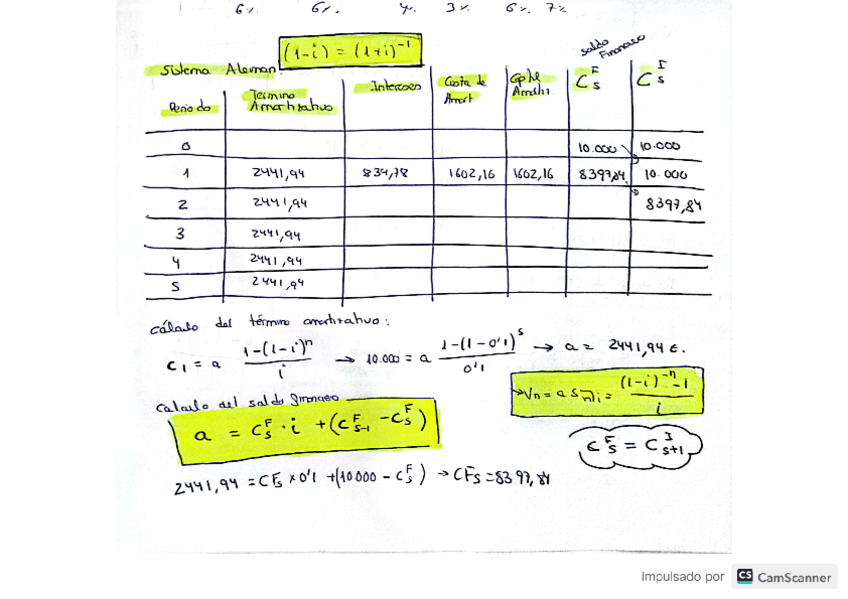 6%. 6%. 4%. 3% 6%. 7%
(1-i) = (1+i)^-1
Sistema Aleman
Periodo Término Amortizativo Intereses Cuota de Amort Cptal Amort. Saldo Financiero C_s^F C_s^I
0 10.000 10.000
1 2441,94 834,78 1602,16 1602,16 8397,84 10.000
2 2441,94 8397,84
3 2441,94
4 2441,94
5 2441,94
cálculo del término amortizativo:
C1 = a (1-(1-i)^n)/i → 10.000 = a (1-(1-0'1)^5)/0'1 → a = 2441,94 €.
→ Vn = a S n¬i = ((1-i)^-n - 1)/i
Calculo del saldo financiero
a = C_s^F · i + (C_s-1^F - C_s^F)
C_s^F = C_s+1^I
2441,94 = CFs x 0'1 + (10.000 - C_s^F) → CFs = 8397,84
Impulsado por CS CamScanner